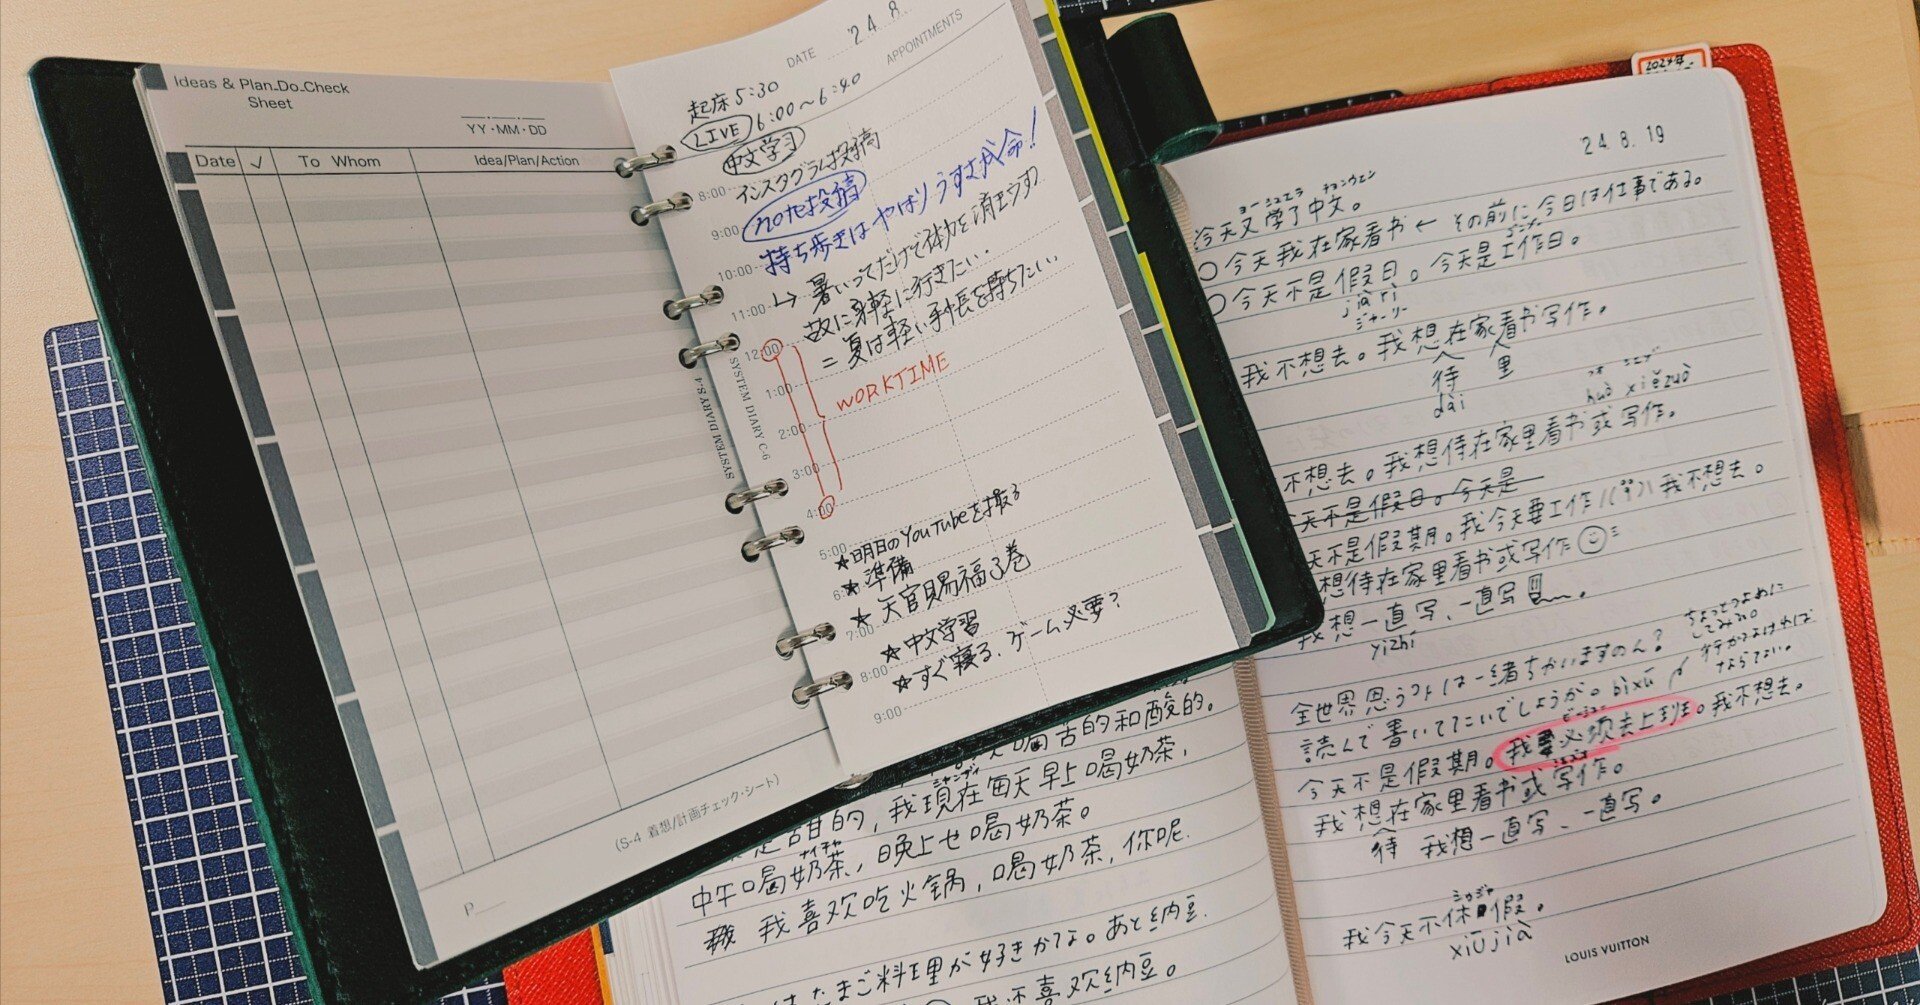 Ideas & Plan_Do_Check
Sheet
YY・MM・DD
Date ✓ To Whom Idea/Plan/Action
(S-4 着想/計画チェック・シート)
P
DATE '24.8.
APPOINTMENTS
起床 5:30
LIVE 6:00～6:40
中文学习
8:00 インスタグラム投稿
9:00 note投稿
持ち歩きはやはりうすさが命!
10:00
↳ 暑いってだけで体力を消もうす
11:00 故に身軽に行きたい.
= 夏は軽い手帳を持ちたい.
12:00
1:00 WORKTIME
2:00
3:00
4:00
SYSTEM DIARY C-6
SYSTEM DIARY S-4
5:00 ★明日のYouTubeを撮る
★準備
6:00
★天官賜福3巻
7:00
★中文学習
8:00
★すぐ寝る、ゲーム必要?
9:00
喝苦的和酸的。
的, 我現在每天早上喝奶茶,
ナイチャ
中午喝奶茶, 晚上也喝奶茶。
我喜欢吃火锅, 喝奶茶, 你呢.
たまご料理が好きかな。あと納豆.
我不喜欢纳豆。
2024年
24.8.19
今天又学了中文。
○今天我在家看书 ← その前に今日は仕事である。
○今天不是假日。今天是工作日。
jià rì
ジャーリー
我不想去。我想在家看书写作。
待 里
dāi
huò xiězuò
不想去。我想待在家里看书或写作。
天不是假日。今天是
天不是假期。我今天要工作 我不想去。
想待在家里看书或写作
我想一直写、一直写
yīzhí
全世界思うコトは一緒ちがいますのん?
ちょっとつよめに
してみる。
行かなければ
ならない。
読んで書いててこいでしょうが。 bìxū
今天不是假期。我必须去上班。我不想去。
我想在家里看书或写作。
待 我想一直写、一直写。
我今天不休假。
xiūjià
LOUIS VUITTON